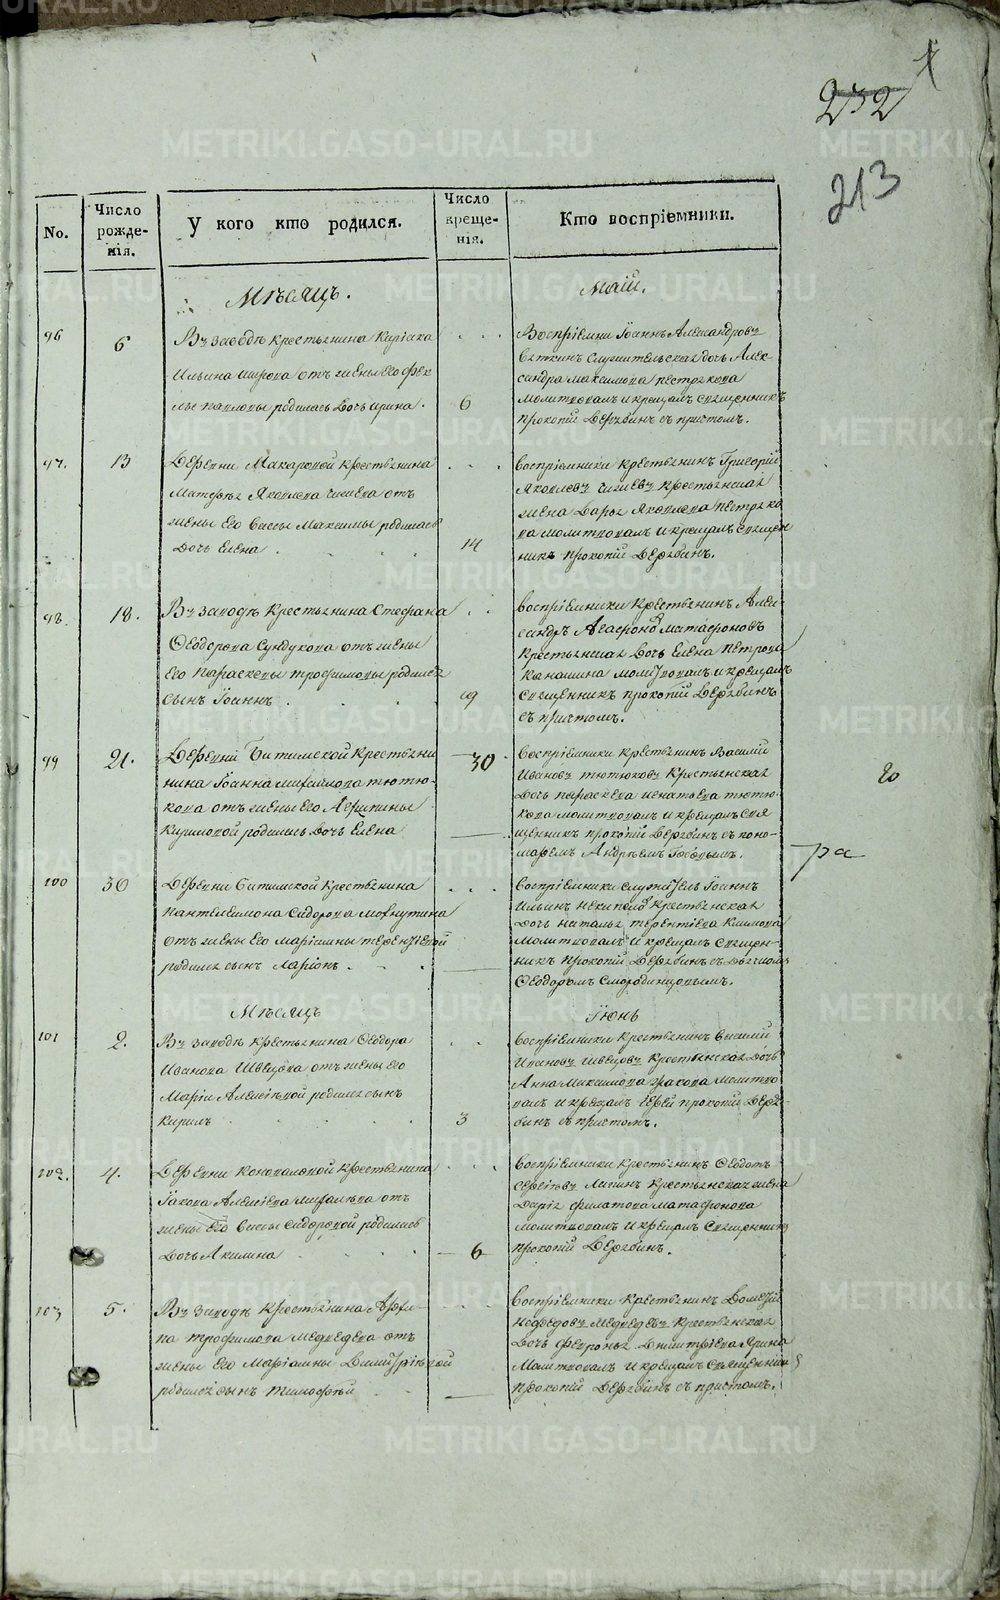 232
213
No.
Число рожде- нія.
У кого кто родился.
Число креще- нія.
Кто воспріемники.
Мѣсяцъ.
Маій.
96
6
Въ заводѣ крестьянина Киріака
Ильина отъ жены его Фек
лы Павловы родилась дочь Ирина.
6
Воспріемни Іоаннъ Александровъ
Вяткинъ служительская дочь Алек
сандра Максимова Пестрякова
молитвовалъ и крещалъ священникъ
Прокопій Дерябинъ съ причтомъ.
97.
13
Деревни Макаровой крестьянина
Матфея Яковлева отъ
жены его Вассы Максимы родилась
дочь Елена
14
воспріемники крестьянинъ Григорій
Яковлевъ крестьянская
жена Дарья Яковлева Пестряко
ва молитвовалъ и крещалъ священ
никъ Прокопій Дерябинъ.
98.
18.
Въ заводѣ крестьянина Стефана
Ѳеодорова Сундукова отъ жены
его Параскевы Трофимовы родился
сынъ Іоаннъ
19
воспріемники крестьянинъ Алек-
сандръ Агафонов Матафоновъ
крестьянская дочь Елена Петрова
Канашина молитвовалъ и крещалъ
священникъ Прокопій Дерябинъ
съ причтомъ.
99
21.
Деревни Битимской крестьяни
нина Іоанна Михайлова Тютю-
кова отъ жены его Агрипины
Кириловой родилась дочь Елена
30
воспріемники крестьянинъ Василій
Ивановъ Тютюковъ крестьянская
дочь Параскева Игнатьева Тютю-
кова молитвовалъ и крещалъ свя
щенникъ Прокопій Дерябинъ съ поно-
маремъ Андреемъ
20
ра
100
30
Деревни Битимской крестьянина
Пантелеимона Сидорова Могнутина
отъ жены его Маріамны Терентіевой
родился сынъ Ларіонъ.
воспріемники служитель Іоаннъ
Ильинъ крестьянская
дочь Наталья Терентіева Климова
молитвовалъ и крещалъ священ-
никъ Прокопій Дерябинъ съ дьячкомъ
Ѳеодоромъ Смородинцовымъ.
Мѣсяцъ
Іюнь
101
2.
Въ заводѣ крестьянина Ѳеодора
Иванова Швецова отъ жены его
Маріи Алексѣевой родился сынъ
Кирилъ
3
воспріемники крестьянинъ Василій
Ивановъ Швецовъ крестьянская дочь
Анна Максимова молитво
валъ и крещалъ іерей Прокопій Деря-
бинъ съ причтомъ.
102.
4.
Деревни Коноваловой крестьянина
Іакова Алексіева Михалева отъ
жены его Вассы Сидоровой родилась
дочь Акилина
6
воспріемники крестьянинъ Ѳеодотъ
Сергіевъ крестьянская жена
Дарія Филатова Матафонова
молитвовалъ и крещалъ священникъ
Прокопій Дерябинъ.
103
5.
Въ заводѣ крестьянина
Трофимова Медведева отъ
жены его Маріамны Димитріевой
родился сынъ Тимофей
воспріемники крестьянинъ
Медведевъ крестьянская
дочь Февронья Димитріева
молитвовалъ и крещалъ священникъ
Прокопій Дерябинъ съ причтомъ.
METRIKI.GASO-URAL.RU